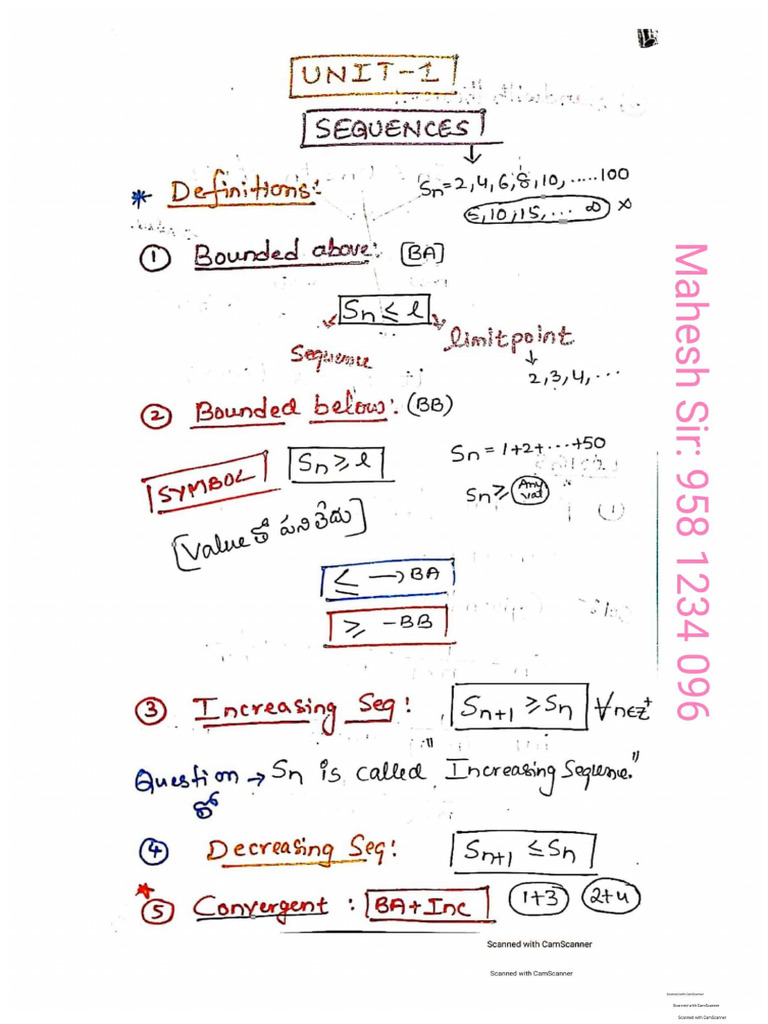 UNIT-1
SEQUENCES
↓
* Definitions:
Sn = 2, 4, 6, 8, 10, ..... 100
5, 10, 15, ... ∞ ×
① Bounded above: [BA]
Sn ≤ l
Sequence
limitpoint
↓
2, 3, 4, ...
② Bounded below: (BB)
SYMBOL
Sn ≥ l
Sn = 1+2+...+50
Sn ≥ Any val
[Value తో పనిలేదు]
≤ → BA
≥ - BB
③ Increasing Seq: Sn+1 ≥ Sn ∀n∈Z+
Question → Sn is called "Increasing Sequence."
లో
④ Decreasing Seq: Sn+1 ≤ Sn
⑤ Convergent : BA+Inc 1+3 2+4
Mahesh Sir: 958 1234 096
Scanned with CamScanner
Scanned with CamScanner
Scanned with CamScanner
Scanned with CamScanner
Scanned with CamScanner